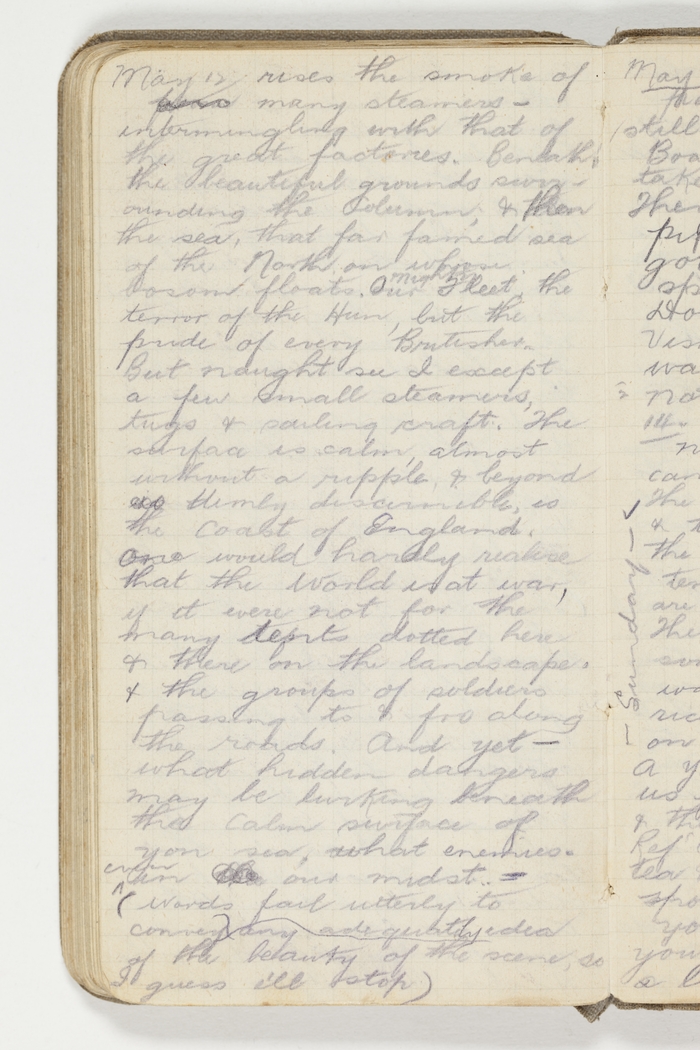 May 12, rises the smoke of
many steamers -
intermingling with that of
the great factories. Beneath,
the beautiful grounds surr-
ounding the Column, & then
the sea, that far famed sea
of the North on whose
bosom floats. Our mighty Fleet, the
terror of the Hun, but the
pride of every Britisher.
But naught see I except
a few small steamers,
tugs & sailing craft. The
surface is calm, almost
without a ripple, & beyond
dimly discernible, is
the Coast of England.
One would hardly realise
that the World is at war,
if it were not for the
many tents dotted here
& there on the landscape.
& the groups of soldiers
passing to & fro along
the roads. And yet -
what hidden dangers
may be lurking beneath
the calm surface of
yon sea, what enemies.
even in our midst. -
(Words fail utterly to
convey any adequately idea
of the beauty of the scene, so
I guess ill stop)
May
still
Boa
take
Ther
go
sp
Do
Vis
wa
no
14.
can
the
&
the
ten
are
The
on
a y
us
& th
Ref
tea
yo
you
a l
- Sunday -